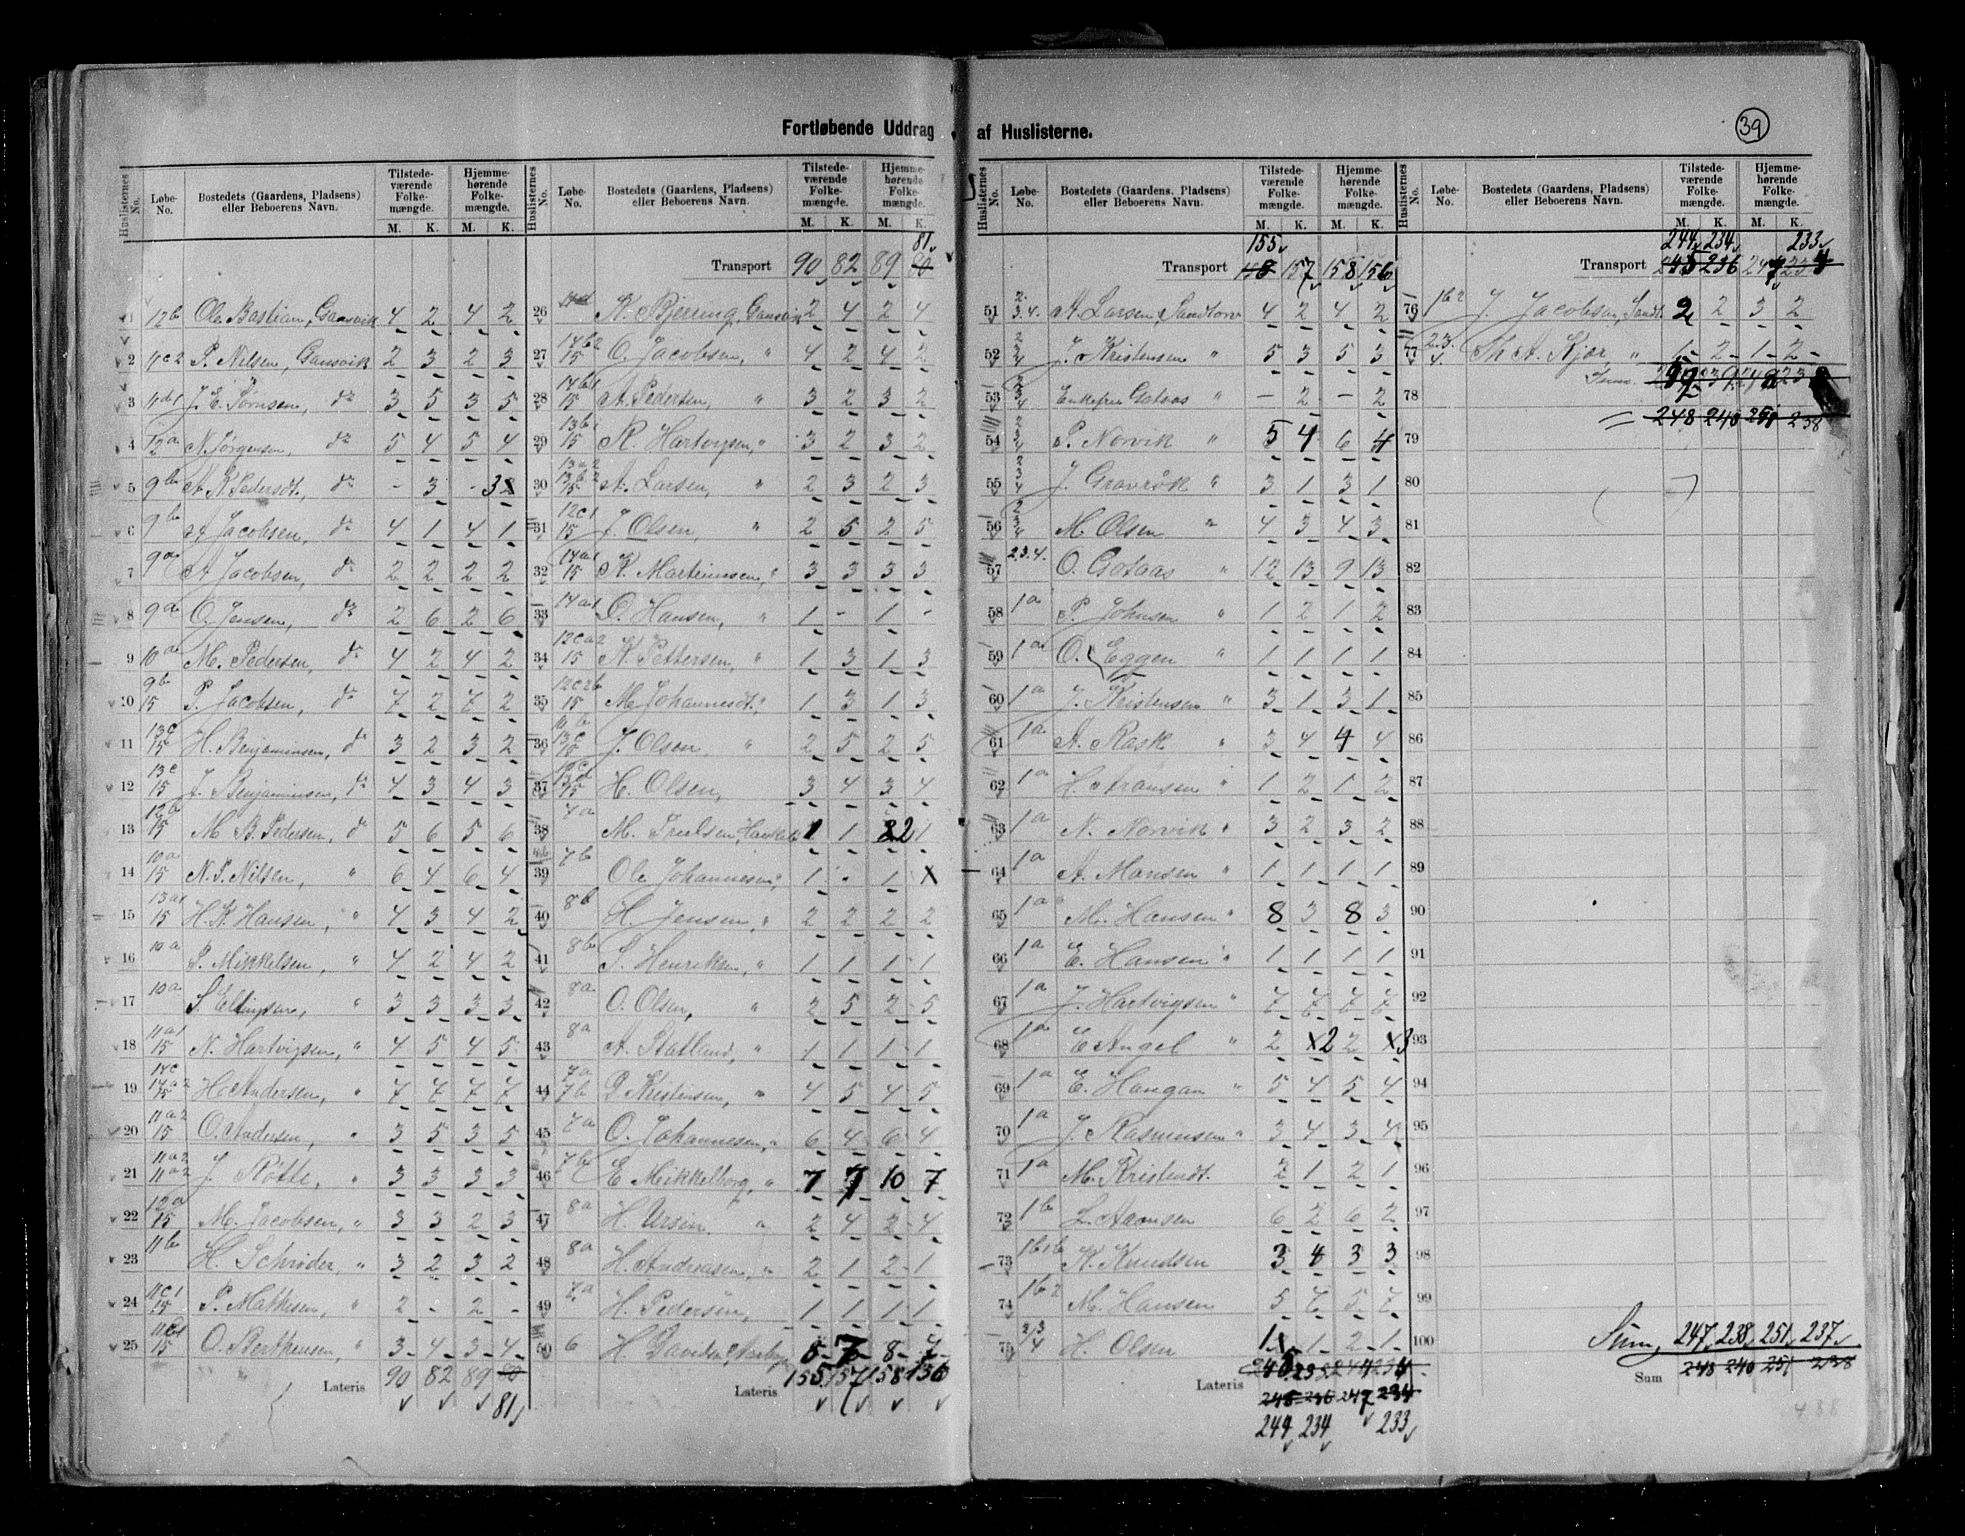 39
Fortløbende Uddrag af Huslisterne.
Huslisternes No. Løbe-No. Bostedets (Gaardens, Pladsens) eller Beboerens Navn. Tilstedeværende Folkemængde. M. K. Hjemmehørende Folkemængde. M. K.
1 12b Ole Bastian, Gansvik 4 2 4 2
2 11c2 P. Nilsen, Gansvik 2 3 2 3
3 11d1 J. E. Tørnsen, do 3 5 3 5
4 12a N. Jørgensen, do 5 4 5 4
5 9b A K Pedersdt., do - 3 - 3
6 9b A Jacobsen, do 4 1 4 1
7 9a A Jacobsen, do 2 2 2 2
8 9a O. Jensen, do 2 6 2 6
9 10a M. Pedersen, do 4 2 4 2
10 9b 15 P. Jacobsen, do 7 2 7 2
11 13c 15 H. Benjaminsen, do 3 2 3 2
12 13c 15 J. Benjaminsen, do 4 3 4 3
13 12b 15 M B. Pedersen, do 5 6 5 6
14 10a 15 N. P. Nilsen, " 6 4 6 4
15 13a1 15 H. K. Hansen, " 4 3 4 2
16 10a P. Mikkelsen, " 4 2 4 2
17 10a S. Ellingsen, " 3 3 3 3
18 11a1 15 N. Hartvigsen, " 4 5 4 5
19 14c 14a2 15 H. Andersen, " 7 7 7 7
20 11a2 15 O. Andersen, " 3 5 3 5
21 11a2 11a2 J. Røtte, " 3 3 3 3
22 12a 15 M. Jacobsen, " 3 3 2 3
23 11b H. Schrøder, " 3 2 3 2
24 11c1 15 P. Mathisen, " 2 - 2 -
25 15 O. Berthensen, " 3 4 3 4
Lateris 90 82 89 80
81
Huslisternes No. Løbe-No. Bostedets (Gaardens, Pladsens) eller Beboerens Navn. Tilstedeværende Folkemængde. M. K. Hjemmehørende Folkemængde. M. K.
81
Transport 90 82 89 80
26 K. Bjerring, Gansvik 2 4 2 4
27 14b2 15 O. Jacobsen, " 4 2 4 2
28 14b1 15 A. Pedersen, " 3 2 3 2
29 13b1 15 K. Hartvigsen, " 3 2 3 2
30 13a2 13b2 15 A. Larsen, " 2 3 2 3
31 12c1 15 J. Olsen, " 2 5 2 5
32 14a1 15 K. Martinusen, " 3 3 3 3
33 14a1 O. Hansen, " 1 - 1 -
34 12ca2 15 K. Pettersen, " 1 3 1 3
35 12c2b 15 M Johannesdt., " 1 3 1 3
36 J. Olsen " 2 5 2 5
37 H. Olsen, 3 4 3 4
38 7a M. Truelsen, 1 1 2 1
39 7b Ole Johannesen, " 1 - 1 x
40 8b H. Jensen, " 2 2 2 2
41 8b S. Henriksen, " 1 1 1 1
42 8a O. Olsen, " 2 5 2 5
43 8a A. Statland, " 1 1 1 1
44 7a 7b P. Kristensen, " 4 5 4 5
45 7a O. Johannesen, " 6 4 6 4
46 7b E Mikkelborg, " 7 7 10 7
47 8a H. Ursin. " 2 4 2 4
48 8a H. Andreasen, " 2 1 2 1
49 7a H. Pedersen, 1 1 1 1
50 6 H Davidsen, 5 7 8 7
Lateris 155 157 158 156
Huslisternes No. Løbe-No. Bostedets (Gaardens, Pladsens) eller Beboerens Navn. Tilstedeværende Folkemængde. M. K. Hjemmehørende Folkemængde. M. K.
155
Transport 158 157 158 156
51 2. 3.4. A. Larsen, Sandtorv 4 2 4 2
52 2 3 4 J. Kristensen " 5 3 5 3
53 2 3 4 Enkefru Gotaas " - 2 - 2
54 2 3 4 P. Norvik " 5 4 6 4
55 2 3 4 J. Gravrók " 3 1 3 1
56 2 3 4 M. Olsen " 4 3 4 3
57 2.3.4. O. Gotaas " 12 13 9 13
58 1a P. Johnsen " 1 2 1 2
59 1a O. Eggen " 1 1 1 1
60 1a J. Kristensen " 3 1 3 1
61 1a A. Rask " 3 4 4 4
62 1a H. Aronsen " 1 2 1 2
63 1a N. Norvik " 3 2 3 2
64 1a A. Monsen " 1 1 1 1
65 1a M. Hansen " 8 3 8 3
66 1a E. Hansen " 1 1 1 1
67 1a J. Hartvigsen " 7 7 7 7
68 1a E Angel " 2 x2 2 x3
69 1a E. Haugan " 5 4 5 4
70 1a J. Rasmussen " 3 4 3 4
71 1a M. Kristendt. 2 1 2 1
72 1b L. Aronsen 6 2 6 2
73 K. Knudsen 3 4 3 3
74 1b2 M. Hansen 5 7 5 7
75 2/3 4 H. Olsen 1 1 2 1
Lateris
245 236 247 234
244 234 233
Huslisternes No. Løbe-No. Bostedets (Gaardens, Pladsens) eller Beboerens Navn. Tilstedeværende Folkemængde. M. K. Hjemmehørende Folkemængde. M. K.
244 234 233
Transport 245 236 247 234
76 1b2 J. Jacobsen, Sandt. 2 2 3 2
77 2.3. 4. Th. A. Kjær, " 1 2 1 2
78 Sum.
79 = 248 240 251 238
80
81
82
83
84
85
86
87
88
89
90
91
92
93
94
95
96
97
98
99
100 Sum, 247 238 251 237
Sum 248 240 251 238